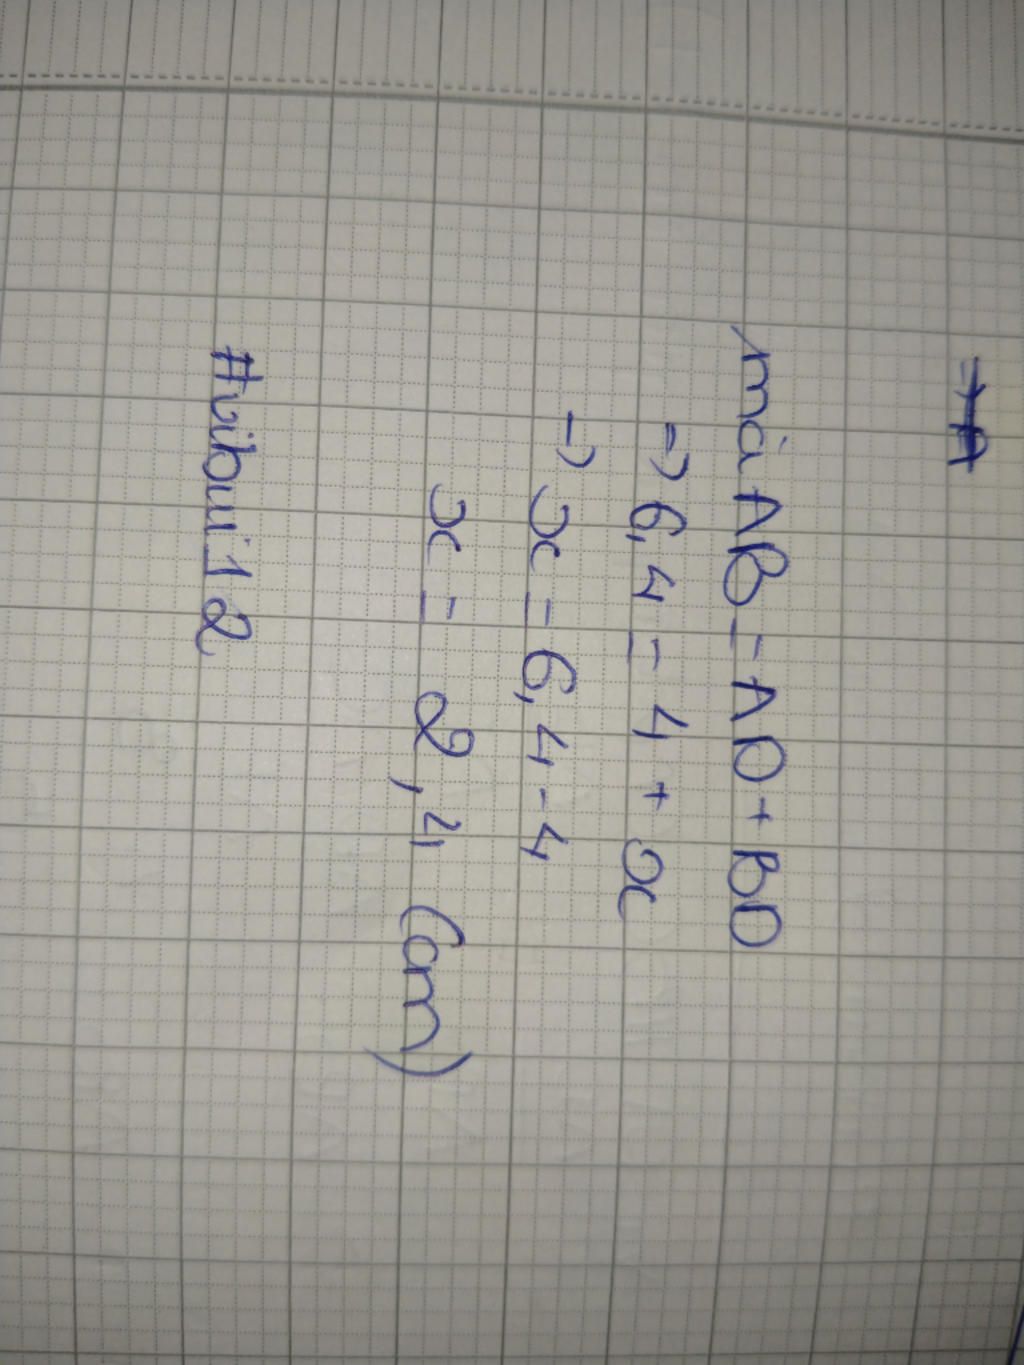 mà AB = AD + BD
=> 6,4 = 4 + x
=> x = 6,4 - 4
x = 2,4 (cm)
#vibui12